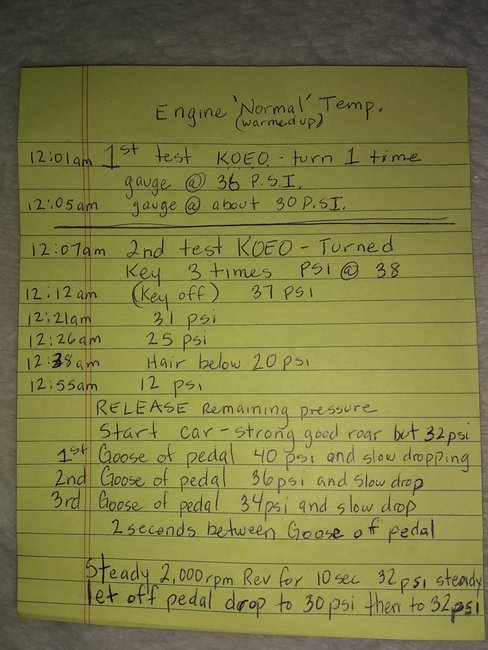 Engine 'Normal' Temp.
(warmed up)
12:01am 1st test KOEO - turn 1 time
gauge @ 36 P.S.I.
12:05am gauge @ about 30 P.S.I.
12:07am 2nd test KOEO - Turned
Key 3 times PSI @ 38
12:12am (Key off) 37 PSI
12:21am 31 psi
12:26am 25 psi
12:38am Hair below 20 psi
12:55am 12 psi
RELEASE Remaining pressure
Start car - strong good roar but 32psi
1st Goose of pedal 40 psi and slow dropping
2nd Goose of pedal 36psi and slow drop
3rd Goose of pedal 34psi and slow drop
2 seconds between Goose of pedal
Steady 2,000rpm Rev for 10sec 32psi steady
let off pedal drop to 30psi then to 32psi